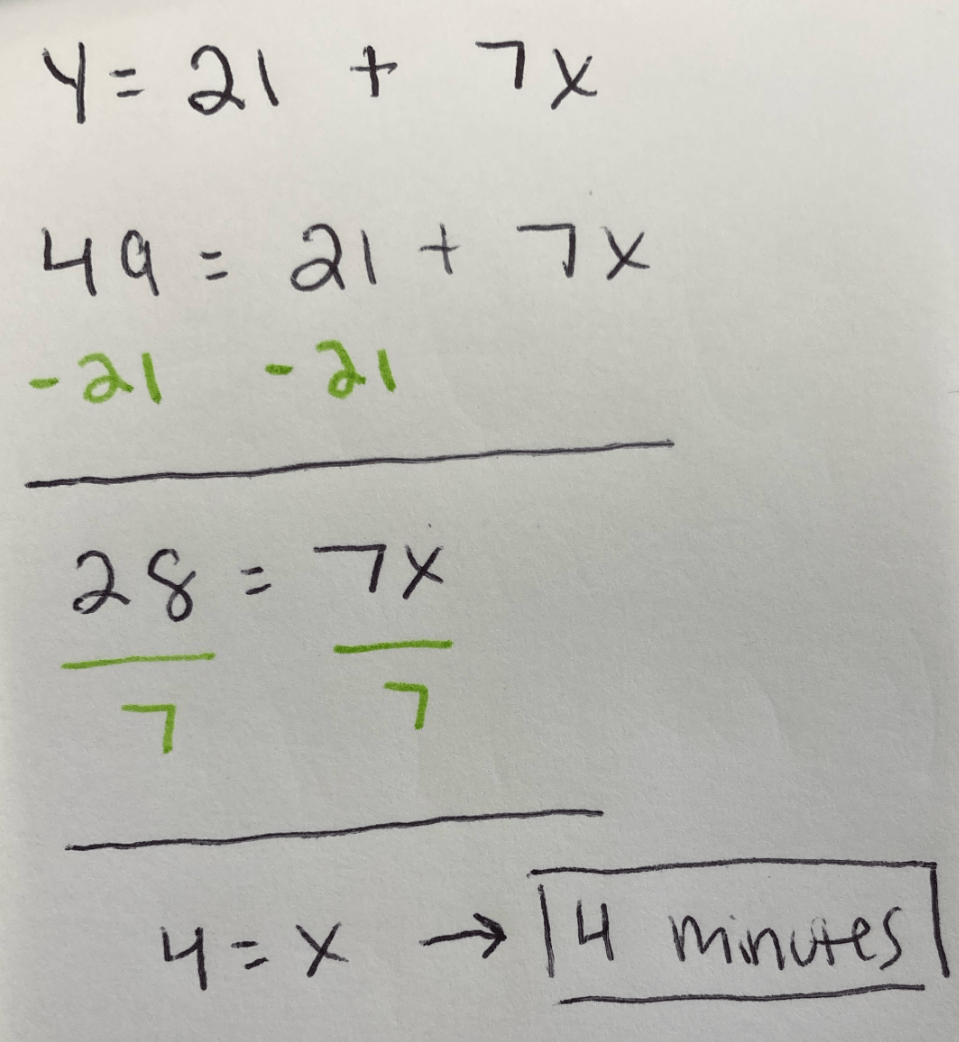 y = 21 + 7x
49 = 21 + 7x
-21 -21
28 = 7x
7 7
4 = x → 4 minutes